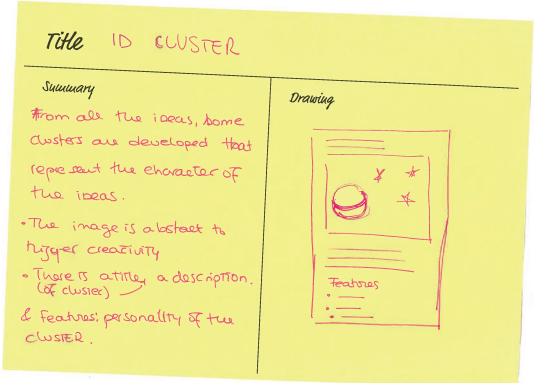 Title ID CLUSTER
Summary
From all the ideas, some
clusters are developed that
represent the character of
the ideas.
• The image is abstact to
trigger creativity
• There is a title, a description.
(of cluster)
& features: personality of the
CLUSTER.
Drawing
Features